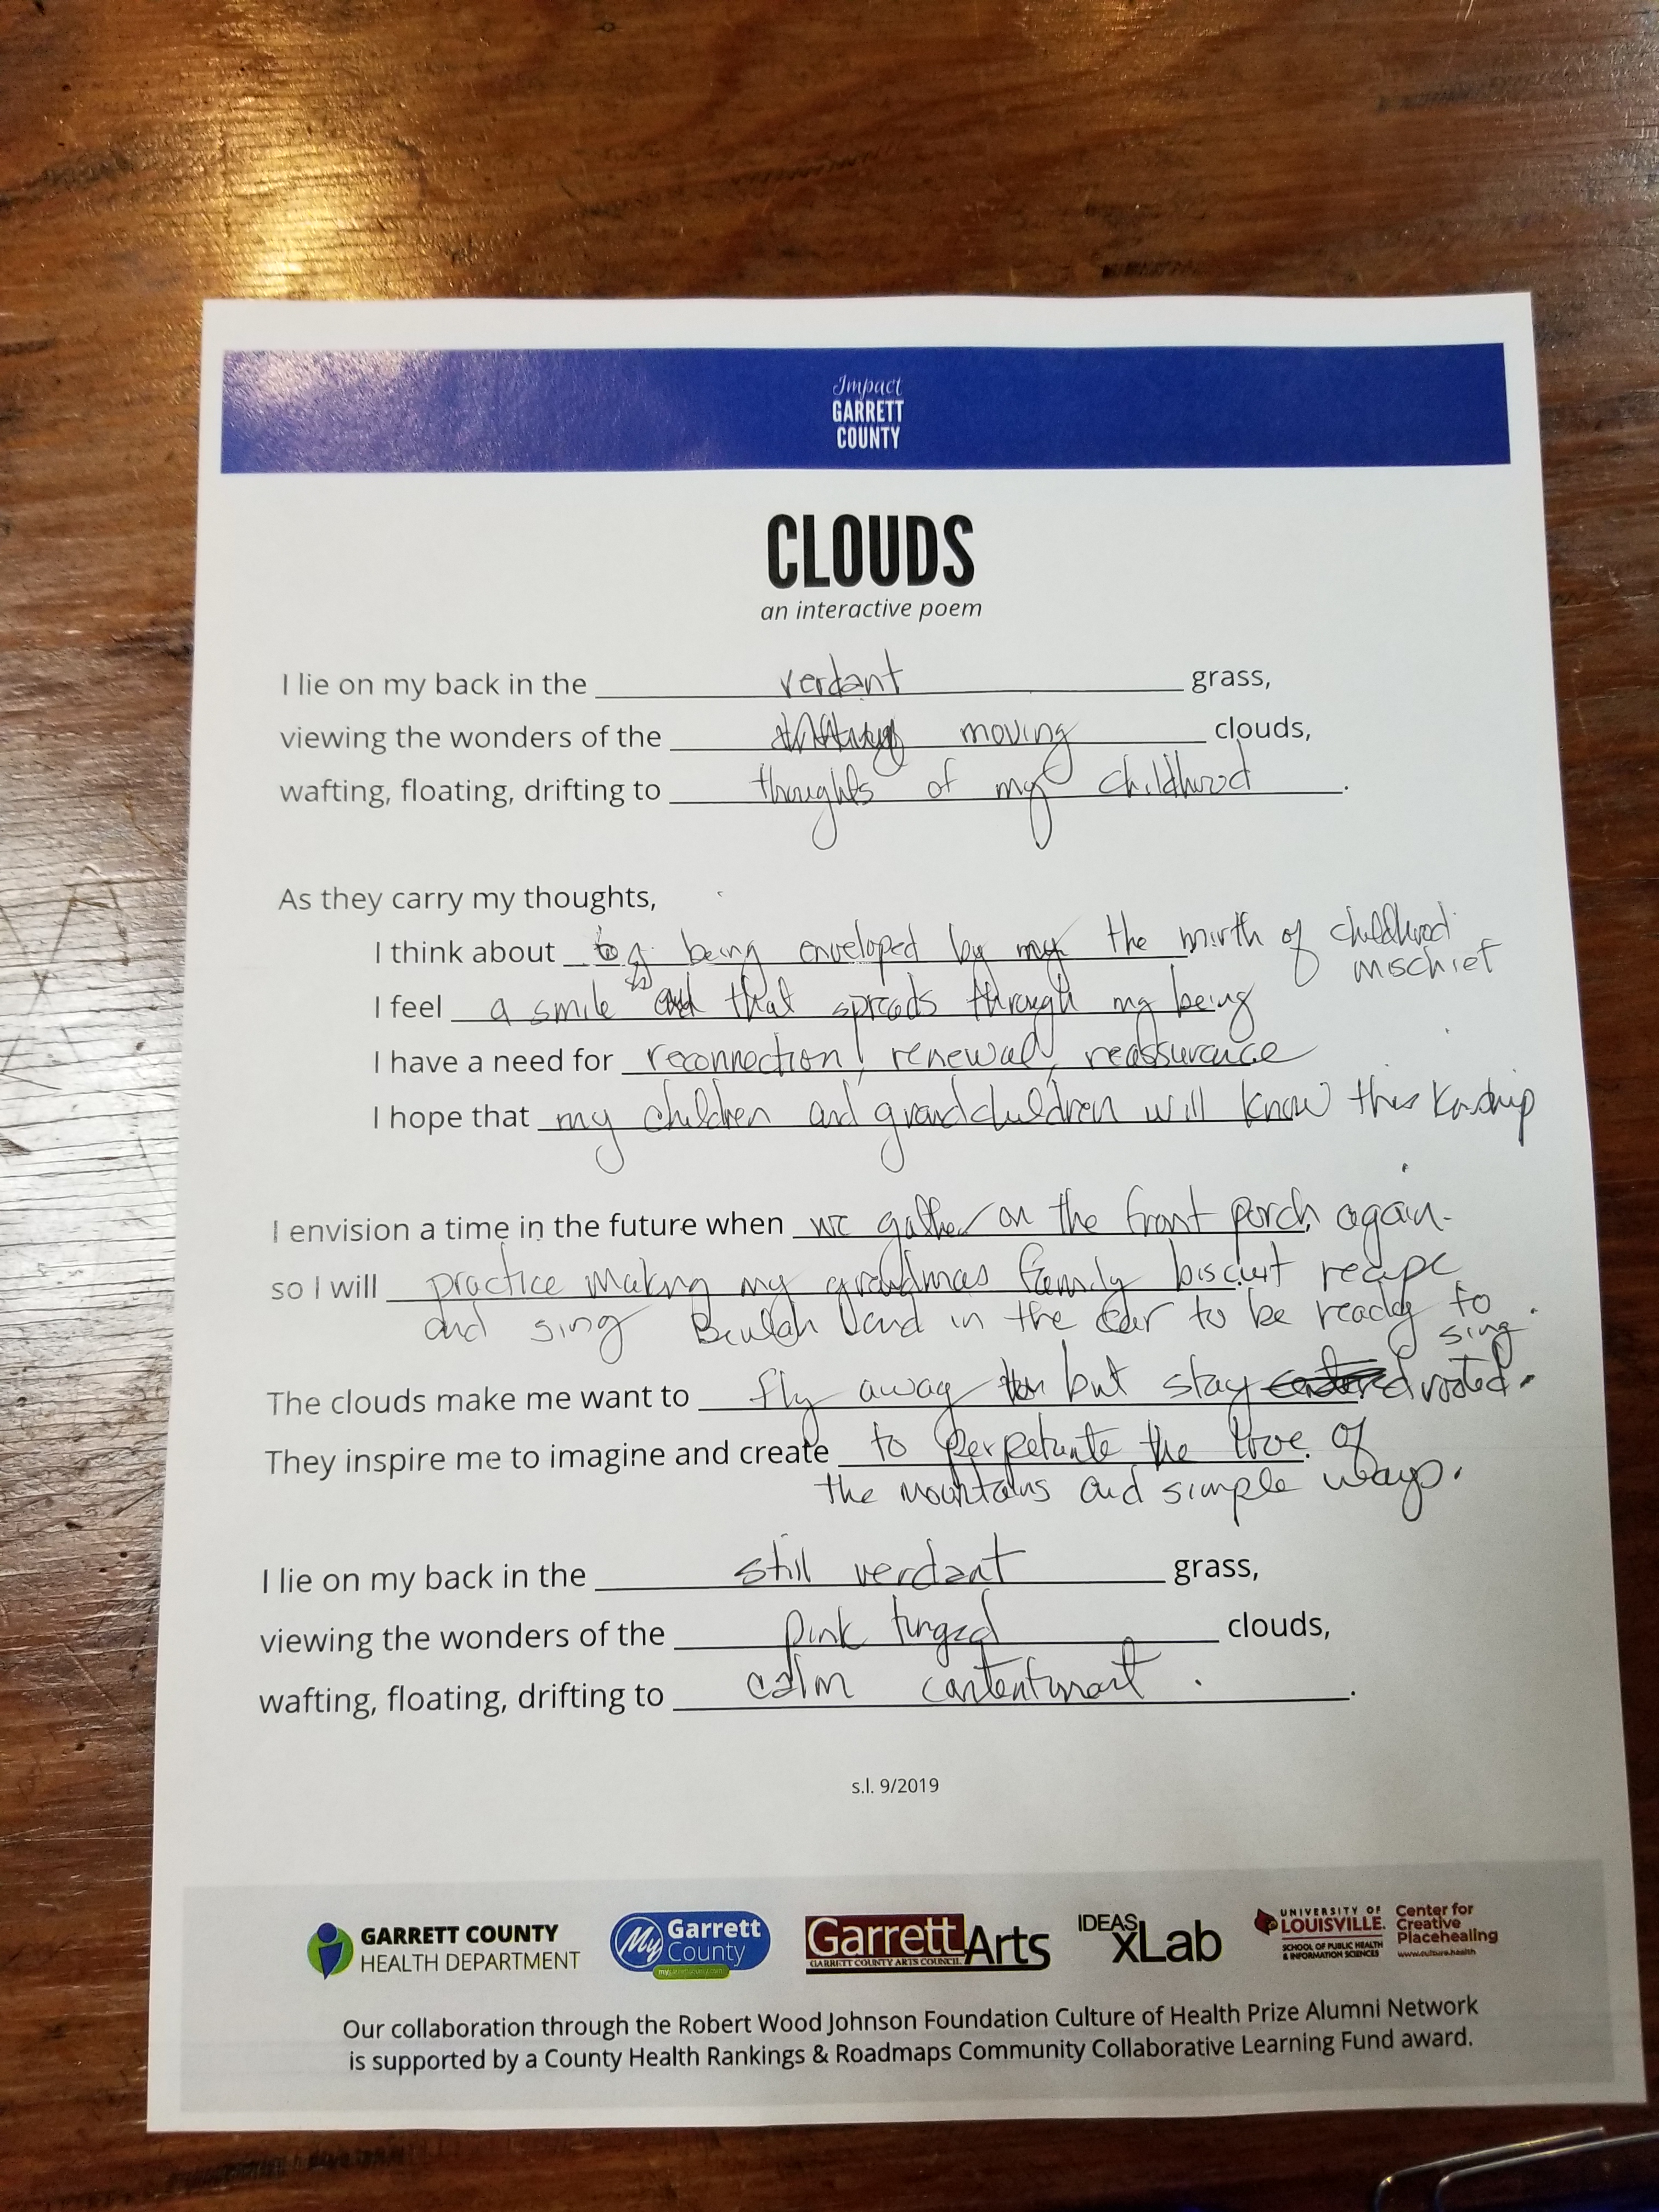 Impact
GARRETT
COUNTY
CLOUDS
an interactive poem
I lie on my back in the verdant grass,
viewing the wonders of the moving clouds,
wafting, floating, drifting to thoughts of my childhood.
As they carry my thoughts,
I think about being enveloped by the mirth of childhood
mischief
I feel a smile that spreads through my being
I have a need for reconnection, renewal, reassurance
I hope that my children and grandchildren will know this kinship
I envision a time in the future when we gather on the front porch again.
so I will practice making my grandmas family biscuit recipe
and sing Beulah Land in the car to be ready to
sing.
The clouds make me want to fly away but stay rooted.
They inspire me to imagine and create to perpetuate the love of
the mountains and simple ways.
I lie on my back in the still verdant grass,
viewing the wonders of the pink tinged clouds,
wafting, floating, drifting to calm contentment.
s.l. 9/2019
GARRETT COUNTY
HEALTH DEPARTMENT
My Garrett
County
Garrett Arts
GARRETT COUNTY ARTS COUNCIL
IDEAS
xLab
UNIVERSITY OF
LOUISVILLE.
SCHOOL OF PUBLIC HEALTH
& INFORMATION SCIENCES
Center for
Creative
Placehealing
www.culture.health
Our collaboration through the Robert Wood Johnson Foundation Culture of Health Prize Alumni Network
is supported by a County Health Rankings & Roadmaps Community Collaborative Learning Fund award.